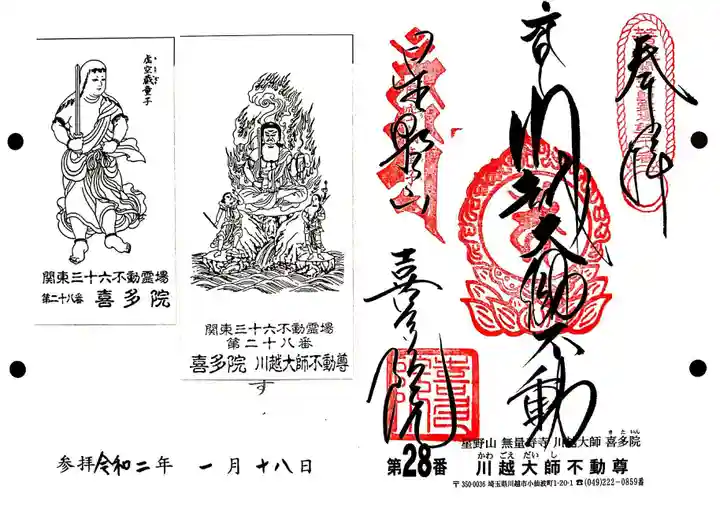 奉拝
川越大師不動
星野山
喜多院
星野山 無量寿寺 川越大師 喜多院
きたいん
第28番
かわごえだいし
川越大師不動尊
〒350-0036 埼玉県川越市小仙波町1-20-1 ☎(049)222-0859番
虚空蔵童子
関東三十六不動霊場
第二十八番 喜多院
関東三十六不動霊場
第二十八番
喜多院 川越大師不動尊
す
参拝 令和二年 一月十八日